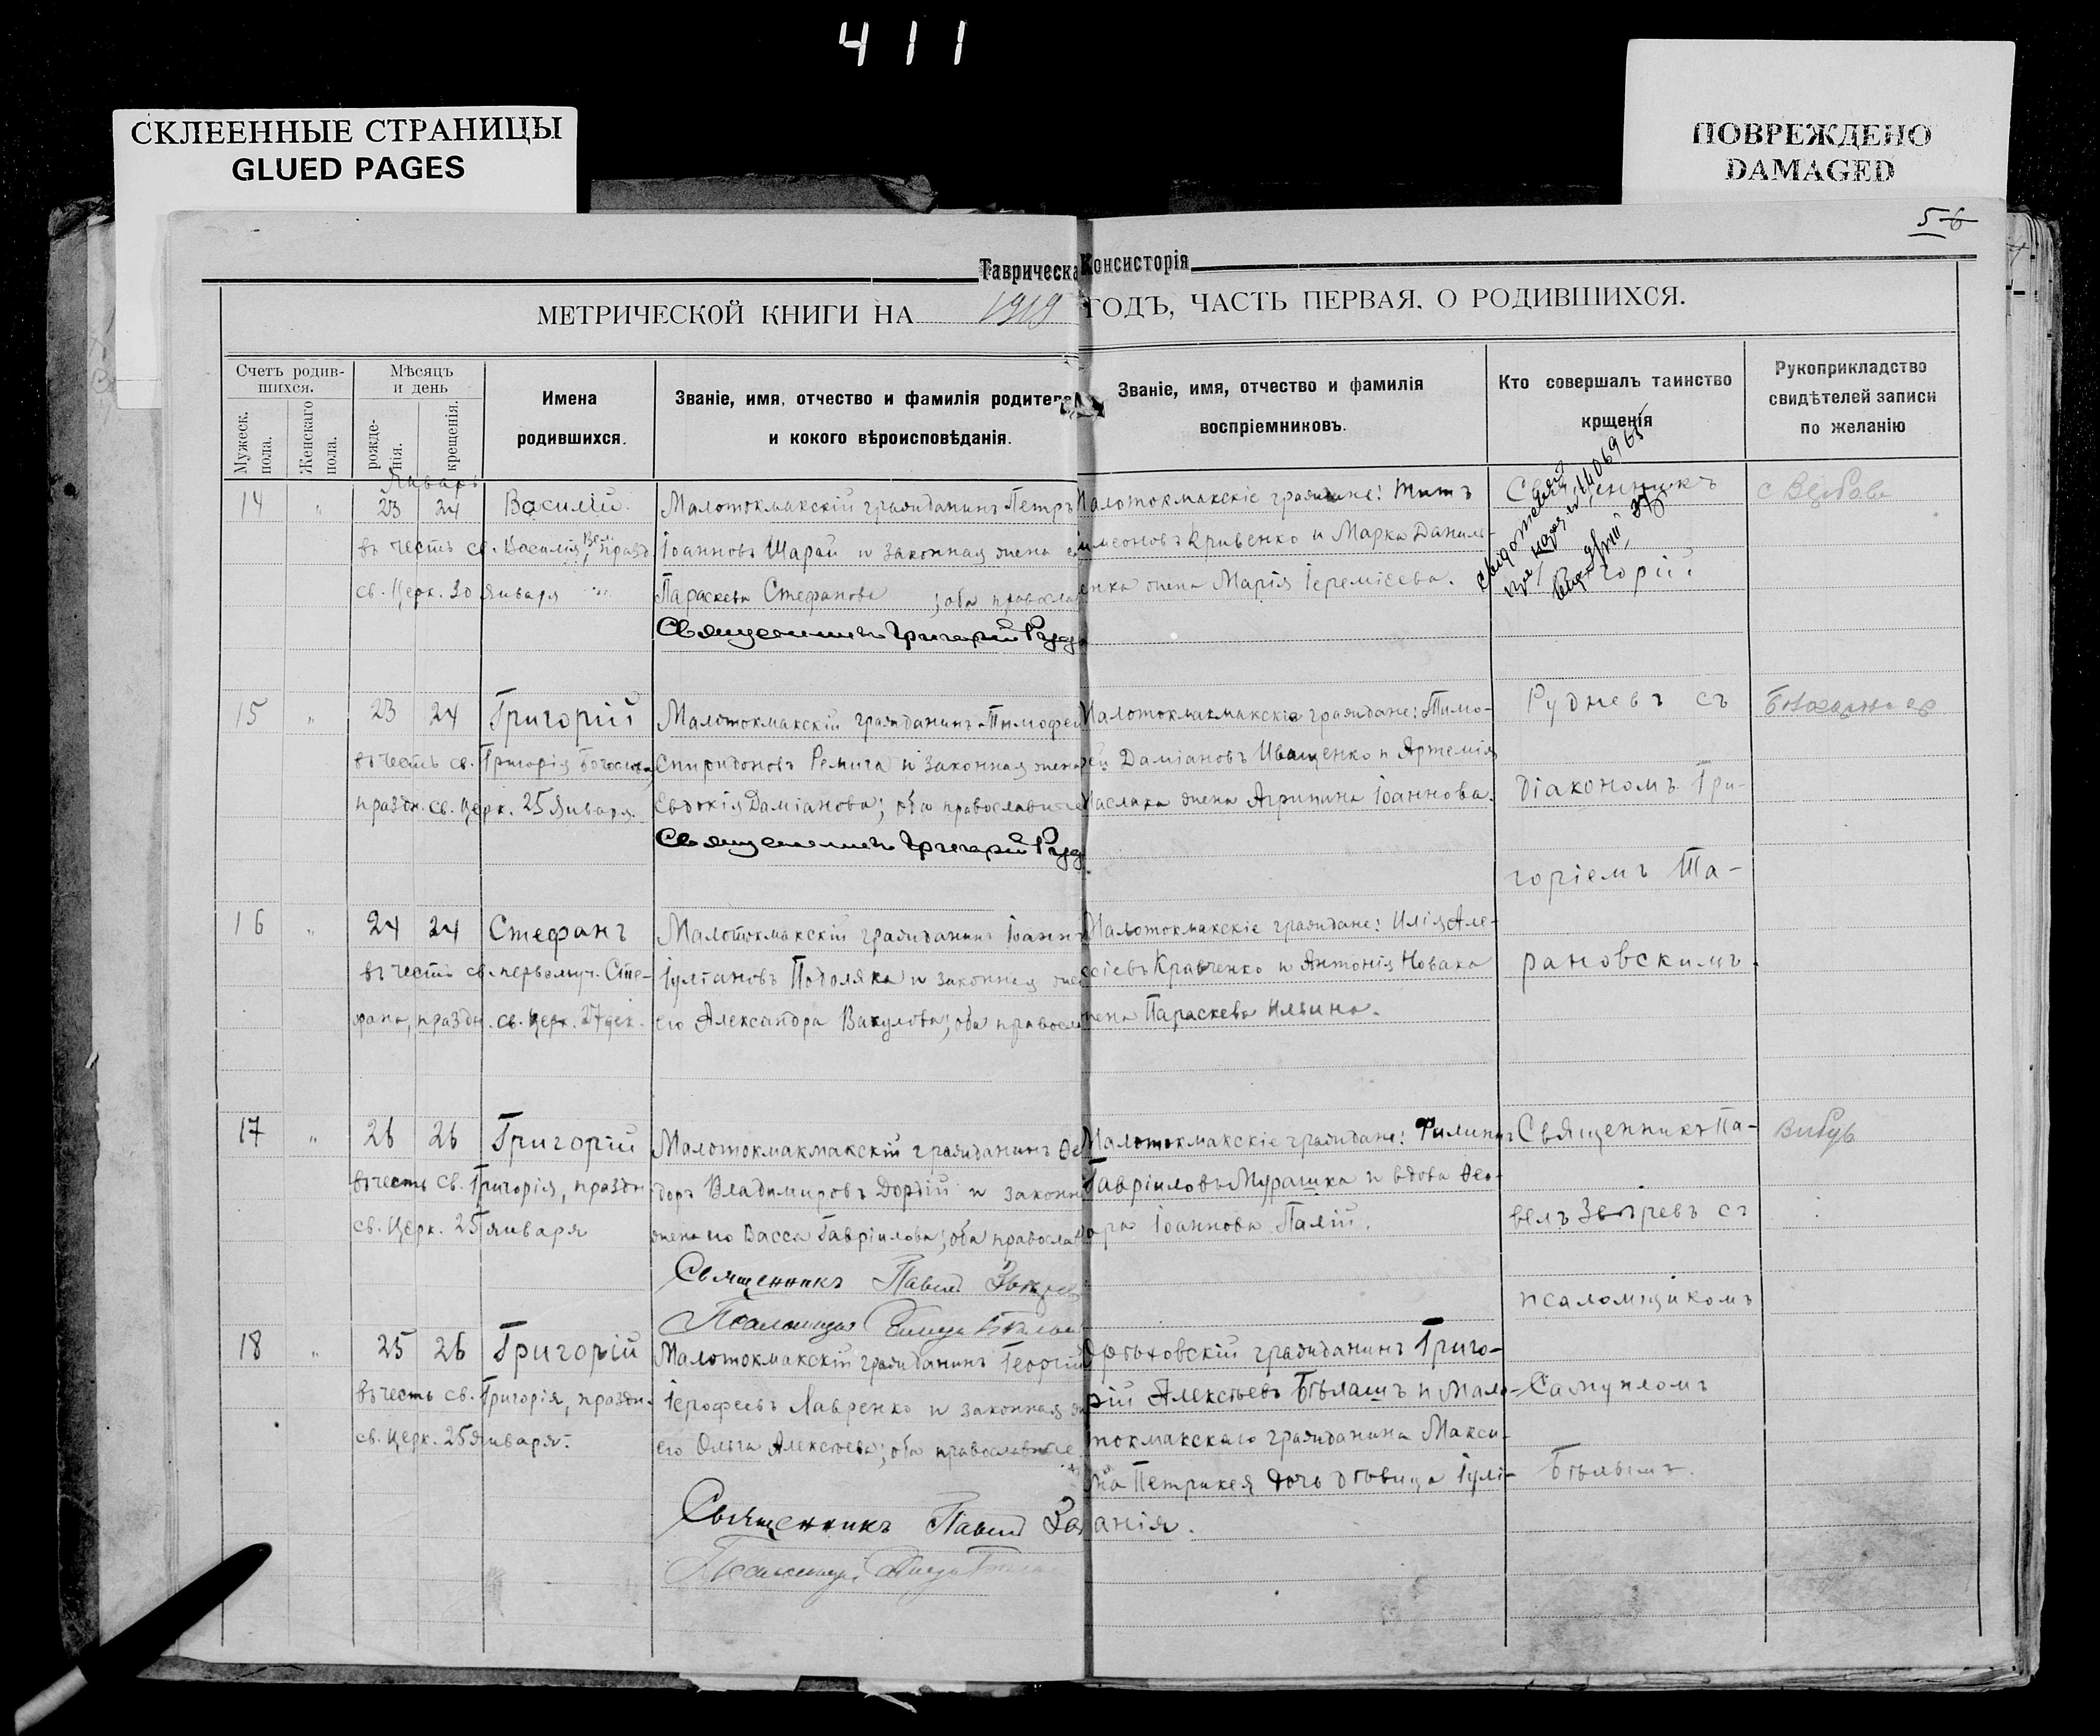 411
СКЛЕЕННЫЕ СТРАНИЦЫ
GLUED PAGES
ПОВРЕЖДЕНО
DAMAGED
5 6
Таврическа Консисторія
МЕТРИЧЕСКОЙ КНИГИ НА 1919 ГОДЪ, ЧАСТЬ ПЕРВАЯ, О РОДИВШИХСЯ.
Счетъ родив-
шихся.
Мужеск.
пола.
Женскаго
пола.
Мѣсяцъ
и день
рожде-
нія.
крещенія.
Имена
родившихся.
Званіе, имя, отчество и фамилія родителе
и кокого вѣроисповѣданія.
Званіе, имя, отчество и фамилія
воспріемниковъ.
Кто совершалъ таинство
крщенія
Рукоприкладство
свидѣтелей записи
по желанію
Январь
14 " 23 24 Василій.
въ честь св. Василія Вел. празд.
св. Церк. 30 Января
Малотокмакскій гражданинъ Петръ
Іоанновъ Шарай и законная жена е
Параскева Стефанова; оба правосла
Священникъ Григорій Рудн
Малотокмакскіе граждане: Титъ
имеоновъ Кривенко и Марка Даниле-
енка жена Марія Іереміева.
Священникъ
Григорій
15 " 23 24 Григорій
въ честь св. Григорія Богослова,
праздн. св. Церк. 25 Января.
Малотокмакскій гражданинъ Тимофей
Спиридоновъ Ремига и законная жена
Евдокія Даміанова; оба православные
Священникъ Григорій Руд
Малотокмакмакскіе граждане: Тимо-
фей Даміановъ Иващенко и Артемія
Маслака жена Агрипина Іоаннова.
Рудневъ съ
діакономъ Гри-
горіемъ Та-
рановскимъ.
16 " 24 24 Стефанъ
въ честь св. первомуч. Сте-
фана, праздн. св. Церк. 27 дек.
Малотокмакскій гражданинъ Іоаннъ
Іуліановъ Подоляка и законная жен
его Александра Вакулова; оба правосла
Малотокмакскіе граждане: Илія Але-
ксіевъ Кравченко и Антонія Новака
жена Параскева Ильина.
17 " 26 26 Григорій
въ честь св. Григорія, праздн.
св. Церк. 25 января
Малотокмакмакскій гражданинъ Ѳе
доръ Владимировъ Дордій и законн
жена его Васса Гавріилова; оба правосла
Священникъ Павелъ Звѣрев
Малотокмакскіе граждане: Филиппъ
Гавріиловъ Мурашка и вдова Ѳео-
дора Іоаннова Палій.
Священникъ Па-
велъ Звѣревъ съ
псаломщикомъ
18 " 25 26 Григорій
въ честь св. Григорія, праздн.
св. Церк. 25 Января.
Малотокмакскій гражданинъ Георгій
Іерофеевъ Лавренко и законная ж
его Ольга Алексѣева; оба православные
Священникъ Павелъ Зв
Орѣховскій гражданинъ Григо-
рій Алексѣевъ Бѣлашъ и Мало-
токмакскаго гражданина Макси-
ма Петрикея дочь дѣвица Іулі-
анія.
Самуиломъ
Бѣлымъ.